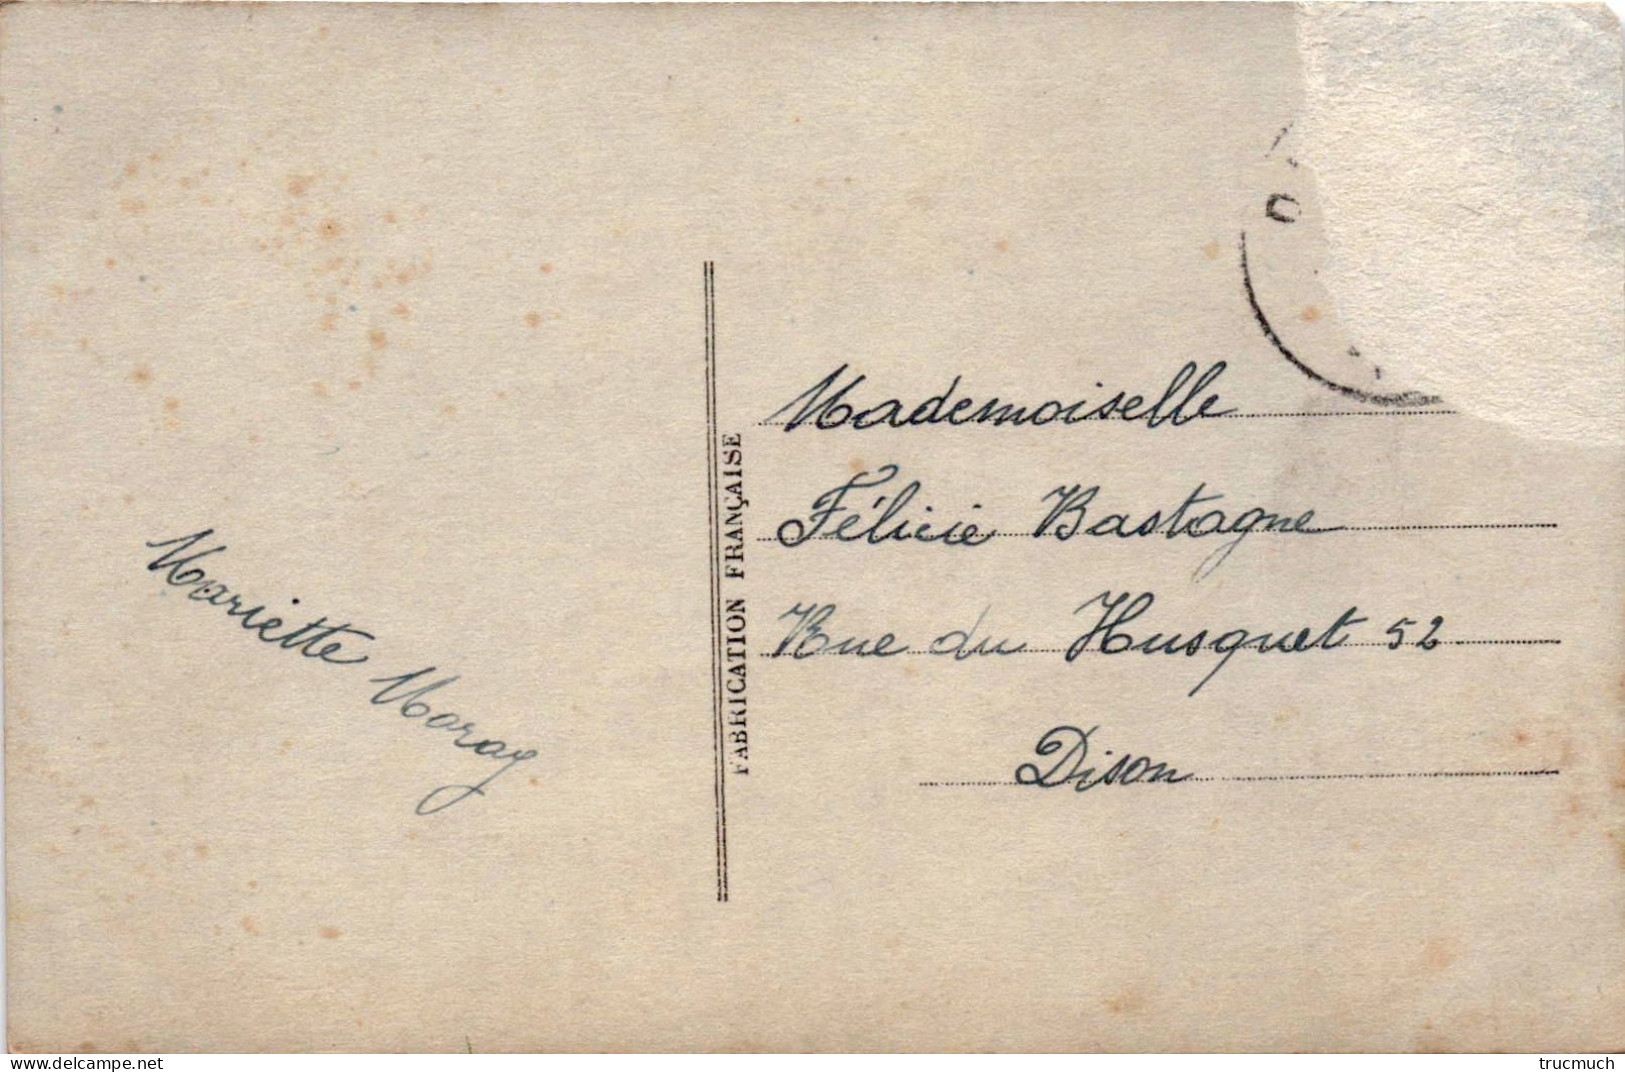 Mademoiselle
Félicie Bastagne
Rue du Husquet 52
Dison
Mariette Moray
FABRICATION FRANÇAISE
delcampe.net
trucmuch